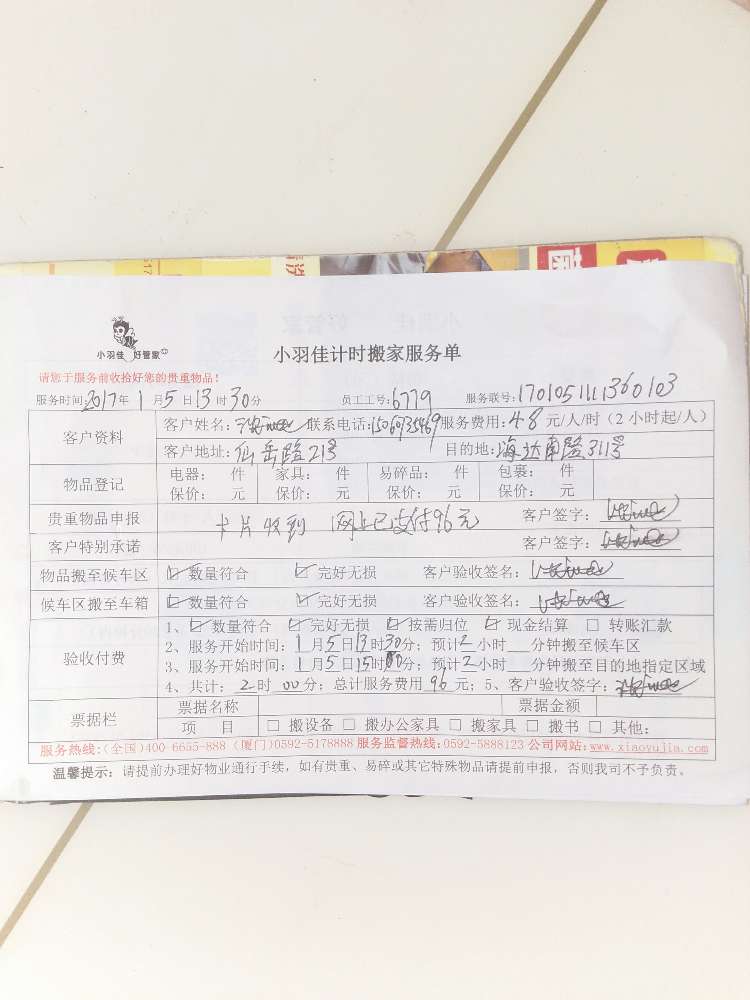 小羽佳 好管家
小羽佳计时搬家服务单
请您于服务前收拾好您的贵重物品!
服务时间:2017年 1 月 5 日 13 时 30 分 员工工号:6779 服务联号:170105111360103
客户资料
客户姓名: 联系电话: 服务费用:48 元/人/时(2 小时起/人)
客户地址:仙岳路21号 目的地:海达南路311号
物品登记
电器: 件 家具: 件 易碎品: 件 包裹: 件
保价: 元 保价: 元 保价: 元 保价: 元
贵重物品申报 客户签字:
卡片收到 网上已支付96元
客户特别承诺 客户签字:
物品搬至候车区 ☑ 数量符合 ☑ 完好无损 客户验收签名:
候车区搬至车箱 ☑ 数量符合 ☑ 完好无损 客户验收签名:
验收付费
1、☑ 数量符合 ☑ 完好无损 ☑ 按需归位 ☑ 现金结算 □ 转账汇款
2、服务开始时间:1 月 5 日 13 时 30 分;预计 2 小时 分钟搬至候车区
3、服务开始时间:1 月 5 日 15 时 00 分;预计 2 小时 分钟搬至目的地指定区域
4、共计:2 时 00 分;总计服务费用 96 元;5、客户验收签字:
票据栏
票据名称 票据金额
项 目 □ 搬设备 □ 搬办公家具 □ 搬家具 □ 搬书 □ 其他:
服务热线:(全国)400-6655-888 (厦门)0592-5178888 服务监督热线:0592-5888123 公司网站:www.xiaoyujia.com
温馨提示:请提前办理好物业通行手续,如有贵重、易碎或其它特殊物品请提前申报,否则我司不予负责。